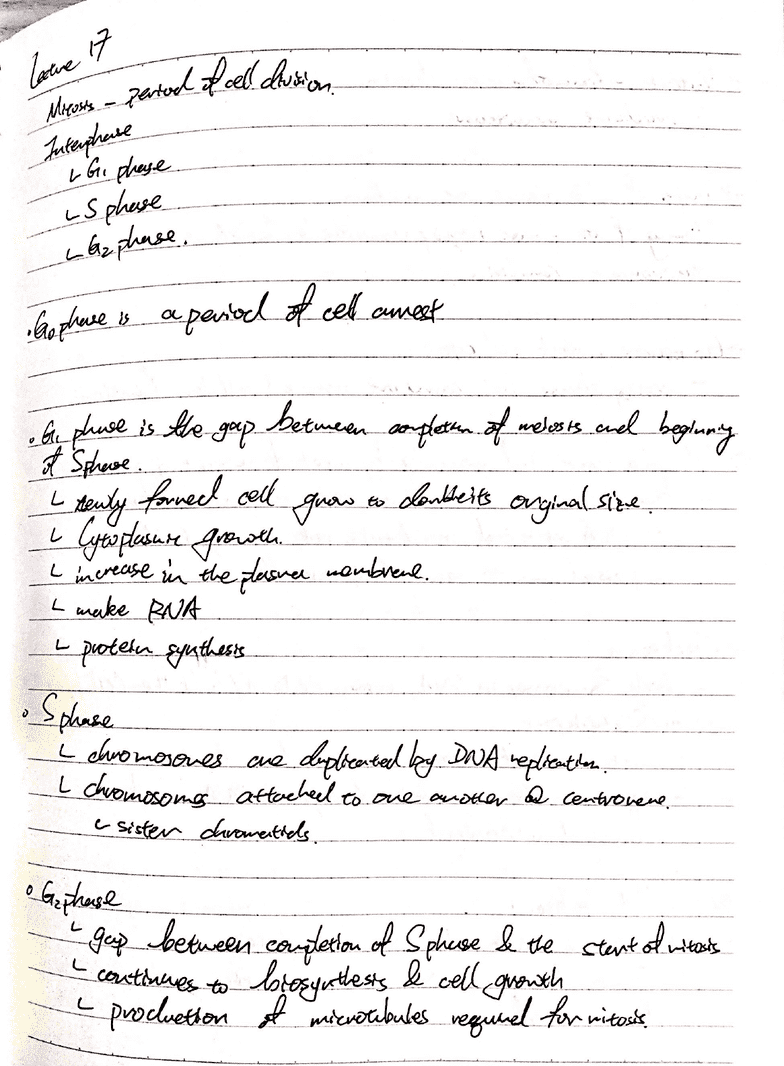 Lecture 17
Mitosis - period of cell division.
Interphase
└ G₁ phase
└ S phase
└ G₂ phase.
• G₀ phase is a period of cell arrest
• G₁ phase is the gap between completion of meiosis and beginning
of S phase.
└ newly formed cell grow to double its original size.
└ Cytoplasm growth.
└ increase in the plasma membrane.
└ make RNA
└ protein synthesis
• S phase
└ chromosomes are duplicated by DNA replication.
└ chromosomes attached to one another @ centromere.
└ sister chromatids.
• G₂ phase
└ gap between completion of S phase & the start of mitosis
└ continues to biosynthesis & cell growth
└ production of microtubules required for mitosis.